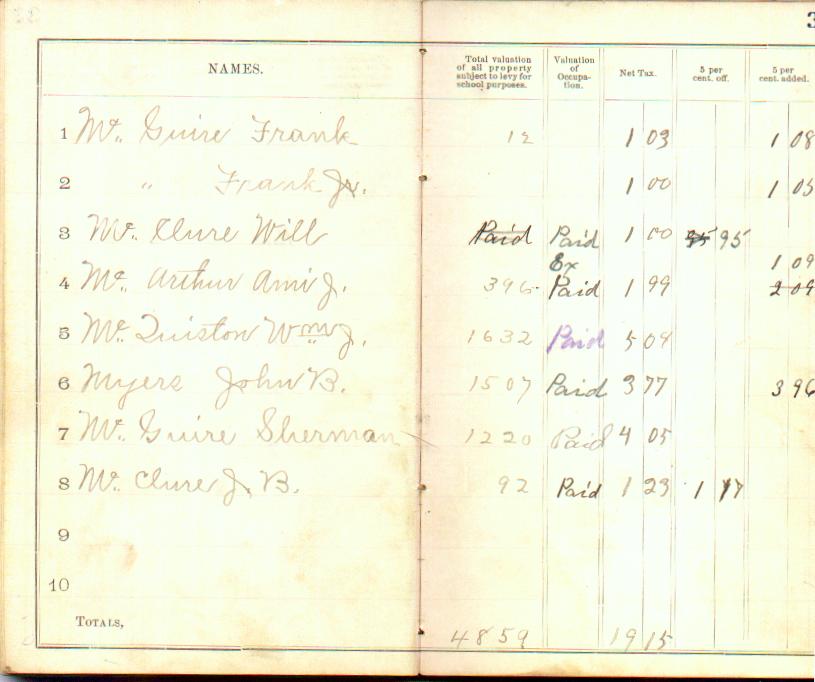 3
NAMES. Total valuation of all property subject to levy for school purposes. Valuation of Occupa- tion. Net Tax. 5 per cent. off. 5 per cent. added.
1 Mc. Guire Frank 12 1 03 1 08
2 " Frank Jr. 1 00 1 05
3 Mc. Clure Will Paid Paid 1 00 95 95
Ex 1 09
4 Mc. Arthur Ami J. 396 Paid 1 99 2 09
5 Mc. Quiston Wm J. 1632 Paid 5 04
6 Myers John B. 1507 Paid 3 77 3 96
7 Mc. Guire Sherman 1220 Paid 4 05
8 Mc. Clure J. B. 92 Paid 1 23 1 17
9
10
TOTALS, 4859 19 15